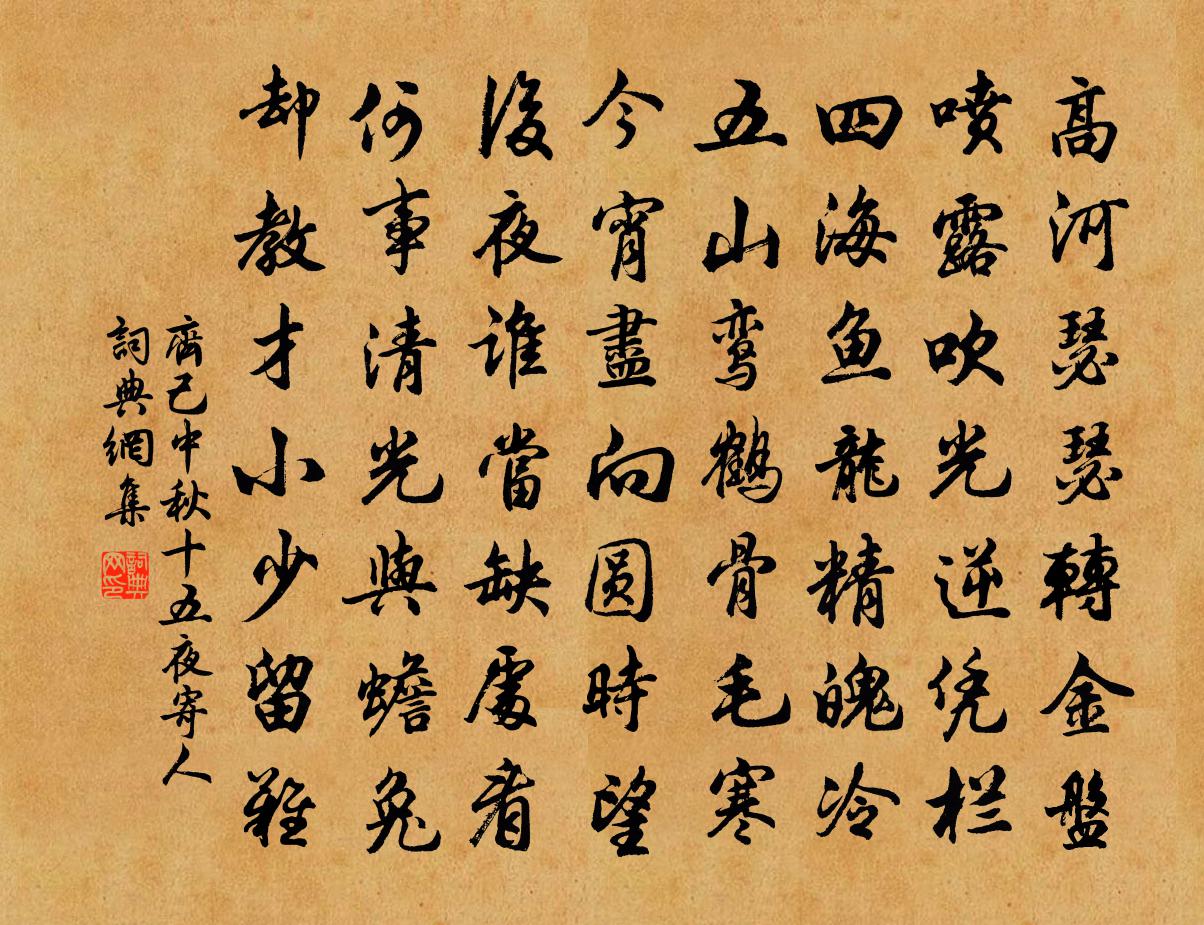 高河瑟瑟轉金盤
噴露吹光逆凭栏
四海鱼龍精魄冷
五山鸾鶴骨毛寒
今宵盡向圆時望
後夜誰當缺處看
何事清光與蟾兔
却教才小少留難
齊己中秋十五夜寄人
詞典網集
詞典网印